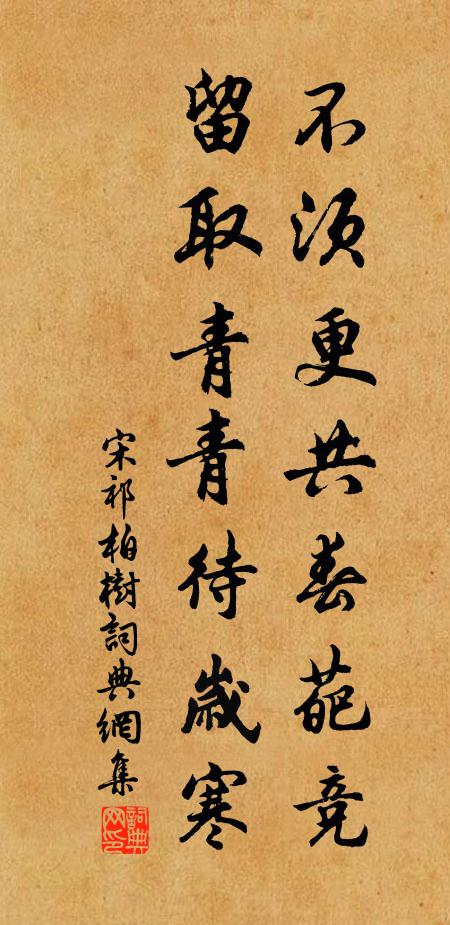 不須更共春葩競
留取青青待歲寒
宋祁柏樹詞典網集
詞典網印